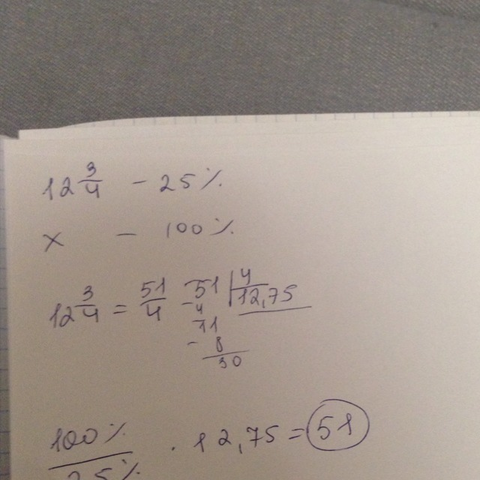 12 3/4 - 25%
x - 100%
12 3/4 = 51/4
51 | 4
12,75
- 4
11
- 8
30
100% / 25% · 12,75 = 51